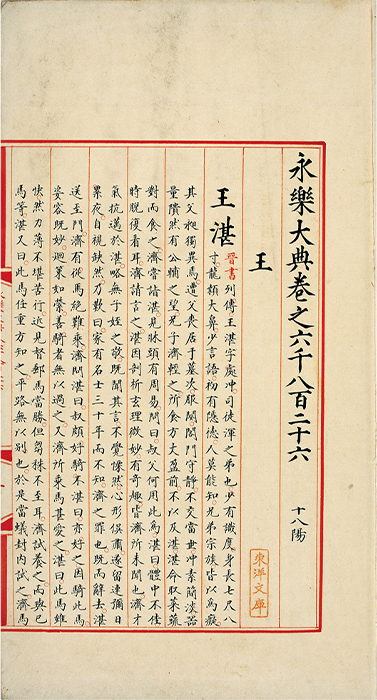 永樂大典卷之六千八百二十六 十八陽
王
東洋文庫
王湛 晉書列傳王湛字處冲司徒渾之弟也少有識度身長七尺八
寸龍顙大鼻少言語初有隱德人莫能知兄弟宗族皆以爲癡
其父昶獨異焉遭父喪居于墓次服闋闔門守靜不交當世冲素簡淡器
量隤然有公輔之望兄子濟輕之所食方丈盈前不以及湛湛命取菜蔬
對而食之濟嘗詣湛見牀頭有周易問曰叔父何用此爲湛曰體中不佳
時脫復看耳濟請言之湛因剖析玄理微妙有奇趣皆濟所未聞也濟才
氣抗邁於湛略無子姪之敬既聞其言不覺慄然心形俱肅遂留連彌日
累夜自視缺然乃歎曰家有名士三十年而不知濟之罪也既而辭去湛
送至門濟有從馬絕難乘濟問湛曰叔頗好騎不湛曰亦好之因騎此馬
姿容既妙迴策如縈善騎者無以過之又濟所乘馬甚愛之湛曰此馬雖
快然力薄不堪苦行近見督郵馬當勝但芻秣不至耳濟試養之而與己
馬等湛又曰此馬任重方知之平路無以別也於是當蟻封內試之濟馬